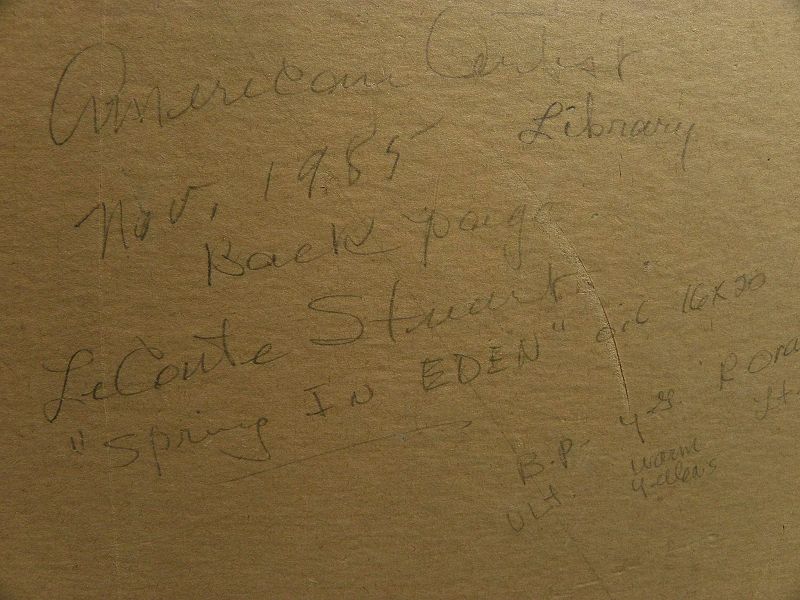 American Artist
Library
Nov, 1985
Back page
LeConte Stuart
"Spring IN EDEN" oil 16x20
B.P. y-g. R Ora
Ult. warm
yellows